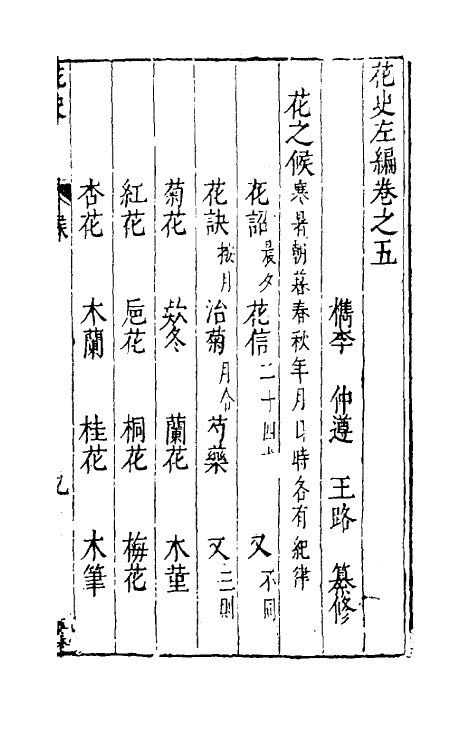 花史左編卷之五
檇李 仲遵 王路 纂修
花之候寒暑朝暮春秋年月日時各有紀律
花詔晨夕 花信二十四 又不同
花訣按月 治菊月令 芍藥 又三則
菊花 欵冬 蘭花 木堇
紅花 巵花 桐花 梅花
杏花 木蘭 桂花 木筆
花史